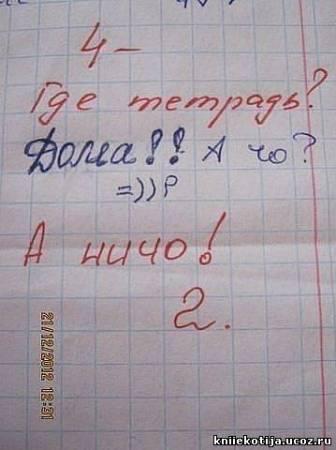 4-
Где тетрадь?
Дома!! А чо?
=))?
А ничо!
2.
21/12/2012 12:31
kniiekotija.ucoz.ru